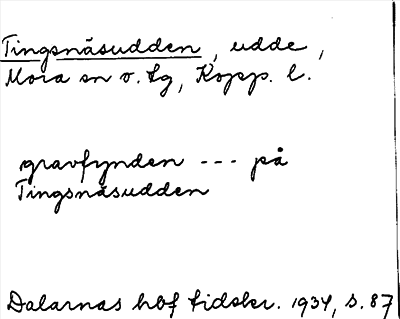 Tingsnäsudden, udde,
Mora sn o. tg, Kopp. l.
gravfynden --- på
Tingsnäsudden
Dalarnas hbf tidskr. 1934, s. 87